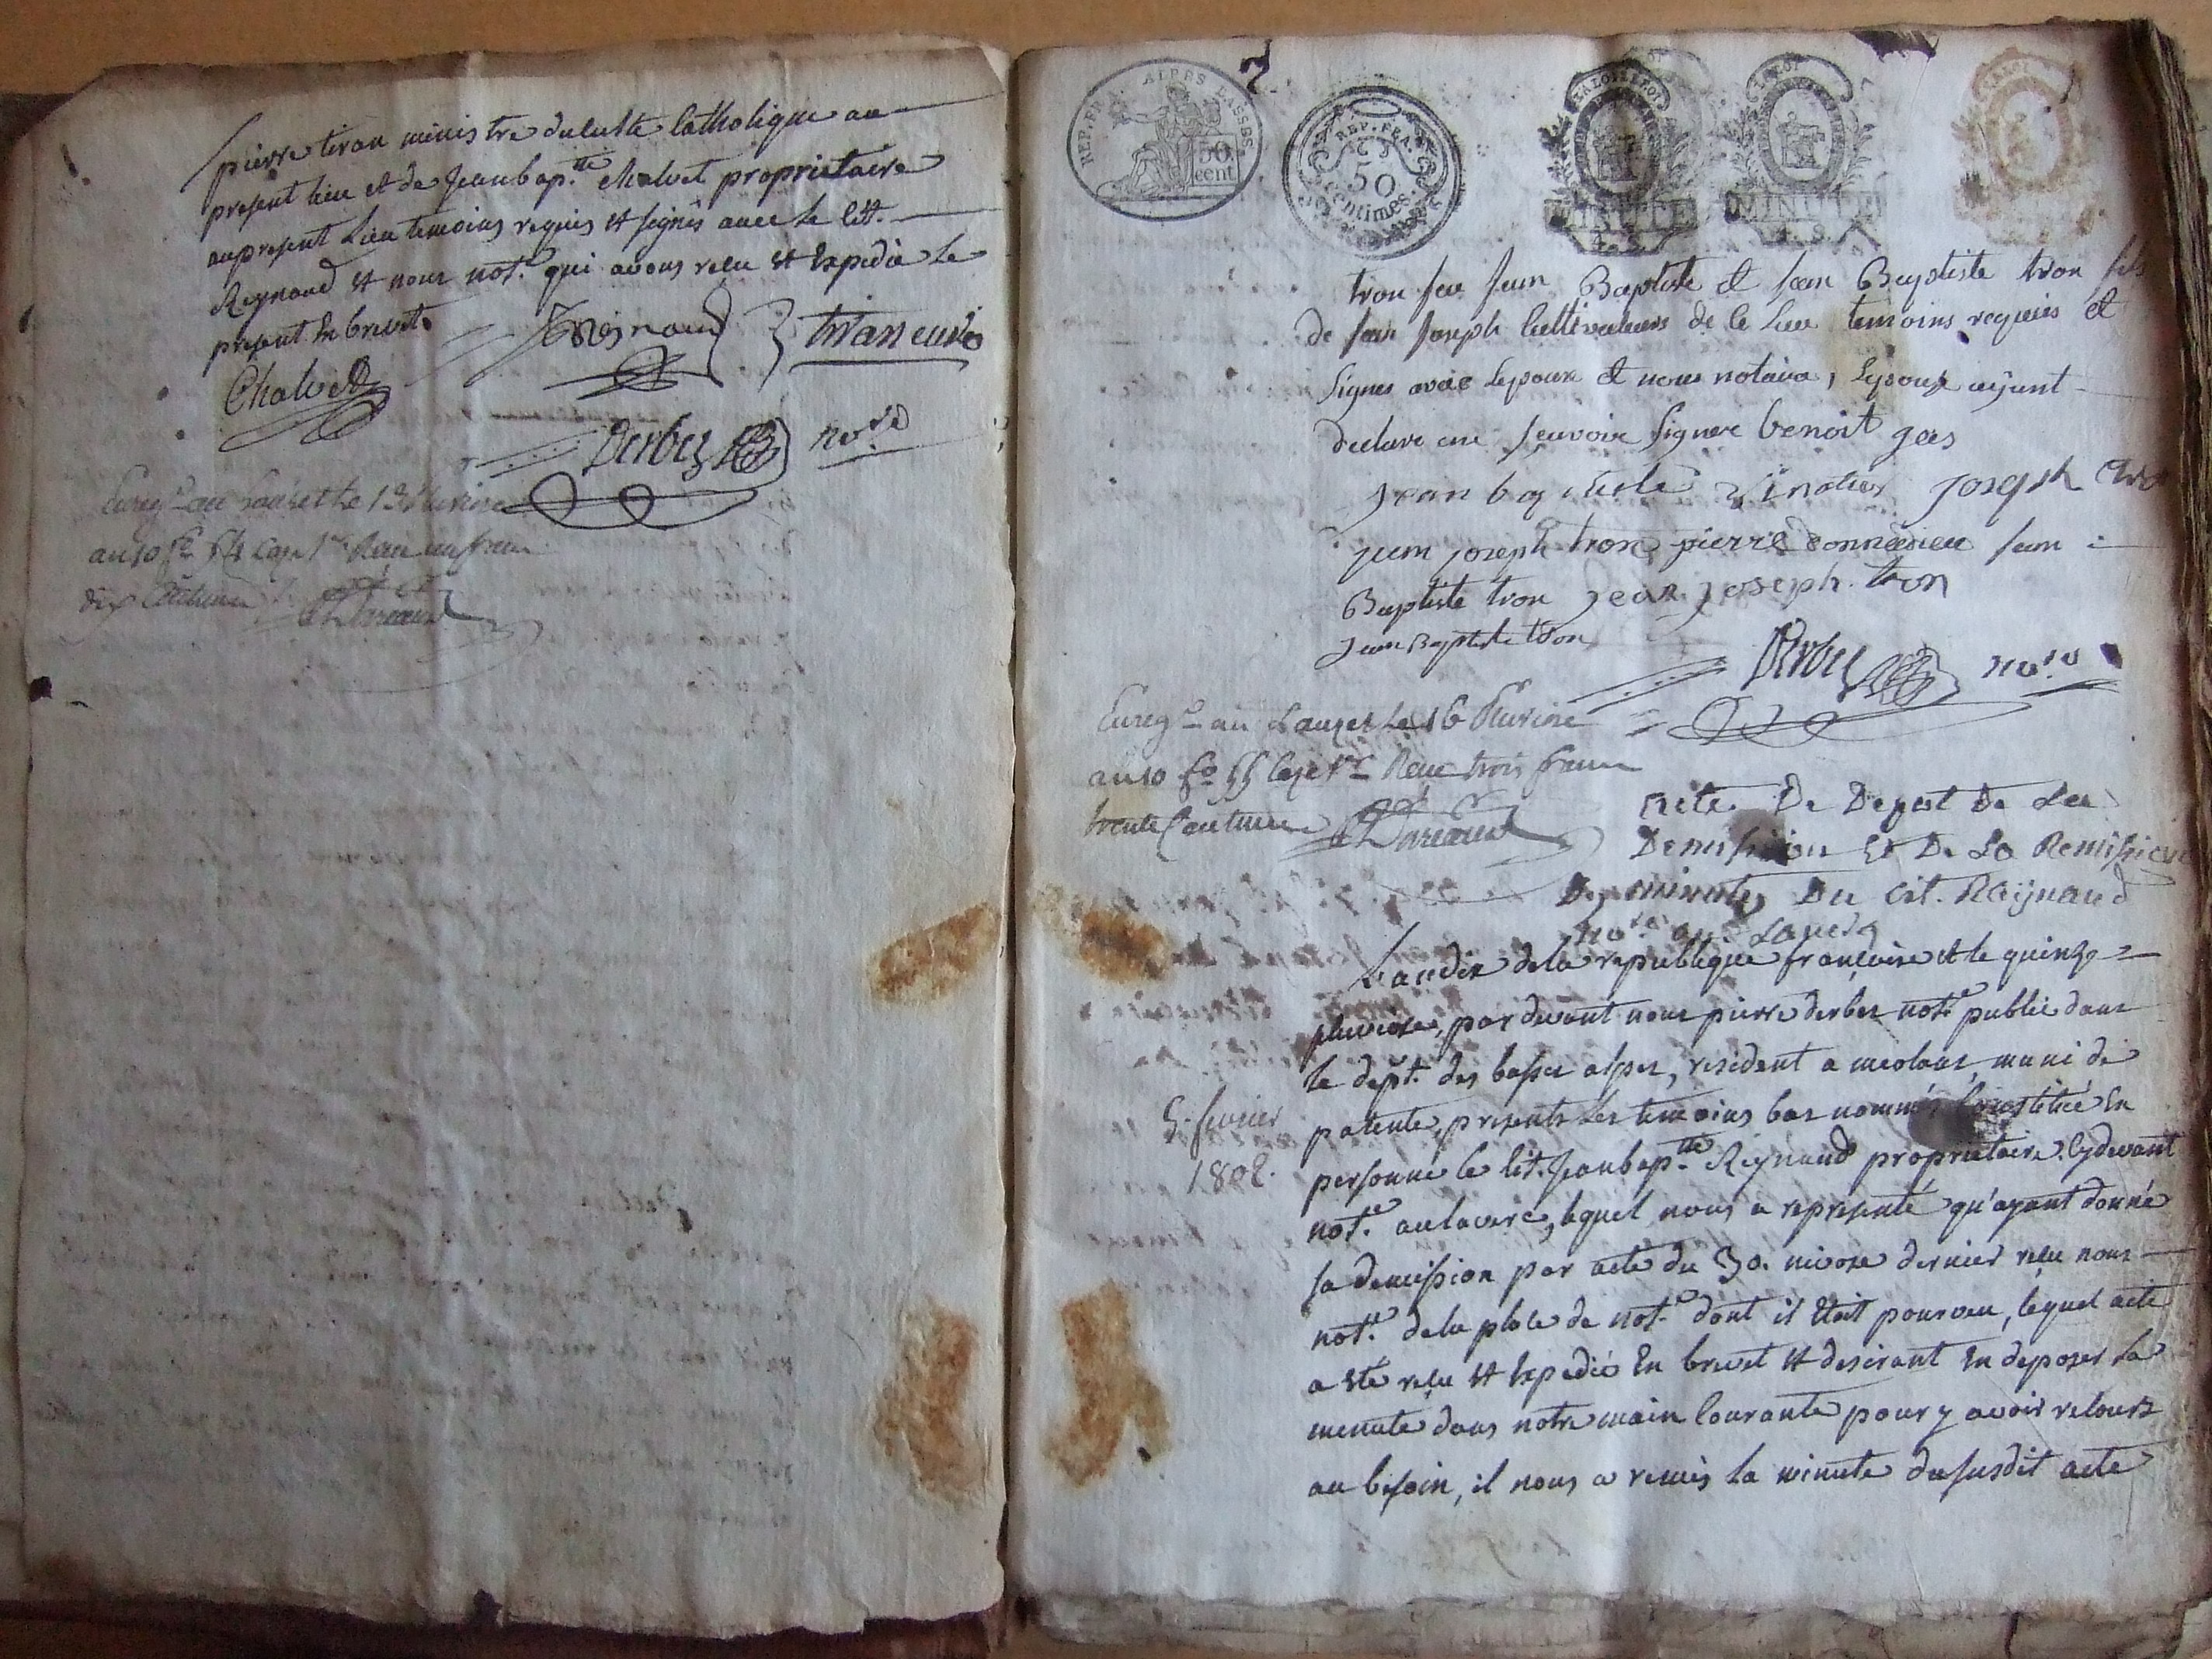 pierre tiran ministre du culte Catholique au
present lieu et de Jean bap.te chalvet proprietaire
au present Lieu temoins requis et signés avec le cit.
Reynaud et nous not.e qui avons reçu et Expedié le
present En brevet.
Reynaud tiran curé
Chalvet
Derbez no.re
Enreg.é au Lauzet le Pluviose
an 10 f.o 54 Case 1.re Reçu un franc
dix Centimes
REP. FRA. ALPES BASSES.
50 cent
2
REP. FRA.
50 Centimes
LA LOI LE ROI
MINUTE
4. S.
LA LOI
MINUTE
4. S.
LA LOI
tron feu Jean Baptiste et Jean Baptiste tron fils
de Jean Joseph Cultivateurs de ce Lieu temoins requis et
Signes avec Lepoux et nous notaire, Lepouse ayant
declaré ne sçavoir signer benoit jas
Jean baptiste Joseph tron
jean joseph tron pierre donnedieu Jean
Baptiste tron jean joseph tron
Jean Baptiste tron
Derbez no.re
Enreg.é au Lauzet Le 16 Pluviose
an 10 f.o 55 Case 1.re Reçu trois francs
trente Centimes
Acte De Depost De La
Demission Et De La Remission
Des minutes Du Cit. Reÿnaud
no.re au Lauzet
L'an dix de la republique françoise et le quinze
pluviose, par devant nous pierre derbez not.e public dans
le dep.t des basses alpes, resident a meolans, muni de
patente, presents Les temoins bas nommés Constitué En
personne le Cit. Jean bap.te Reynaud proprietaire Cydevant
5. fevrier
1802.
not.e au laverc, lequel nous a représenté qu'ayant donné
sa demission par acte du 30. nivose dernier reçu nous
not.e de la place de not.e dont il Etait pourveu, lequel acte
a Eté reçu et Expedié En brevet et desirant En deposer la
minute dans notre main Courante pour y avoir recours
au besoin, il nous a remis la minute du susdit acte